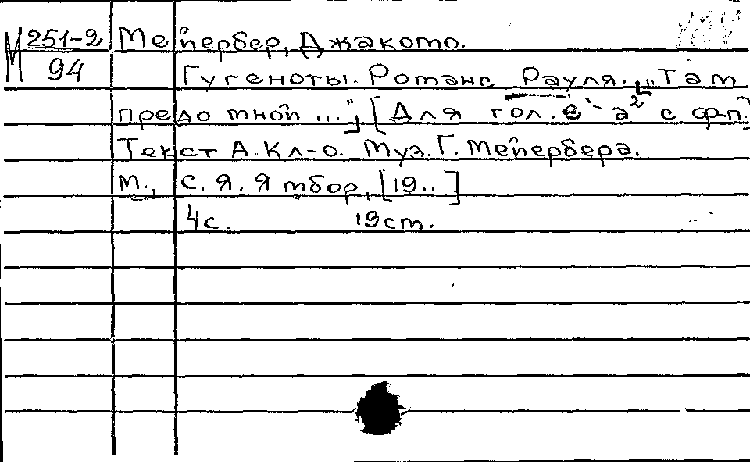 М 251-2
94
Мейербер, Джакомо.
Гугеноты. Романс Рауля. „Там
предо мной ...", [Для гол. e' - a² с ф-п.]
Текст А. Кл-о. Муз. Г. Мейербера.
М., С. Я. Ямбор, [19..]
4с. 19см.